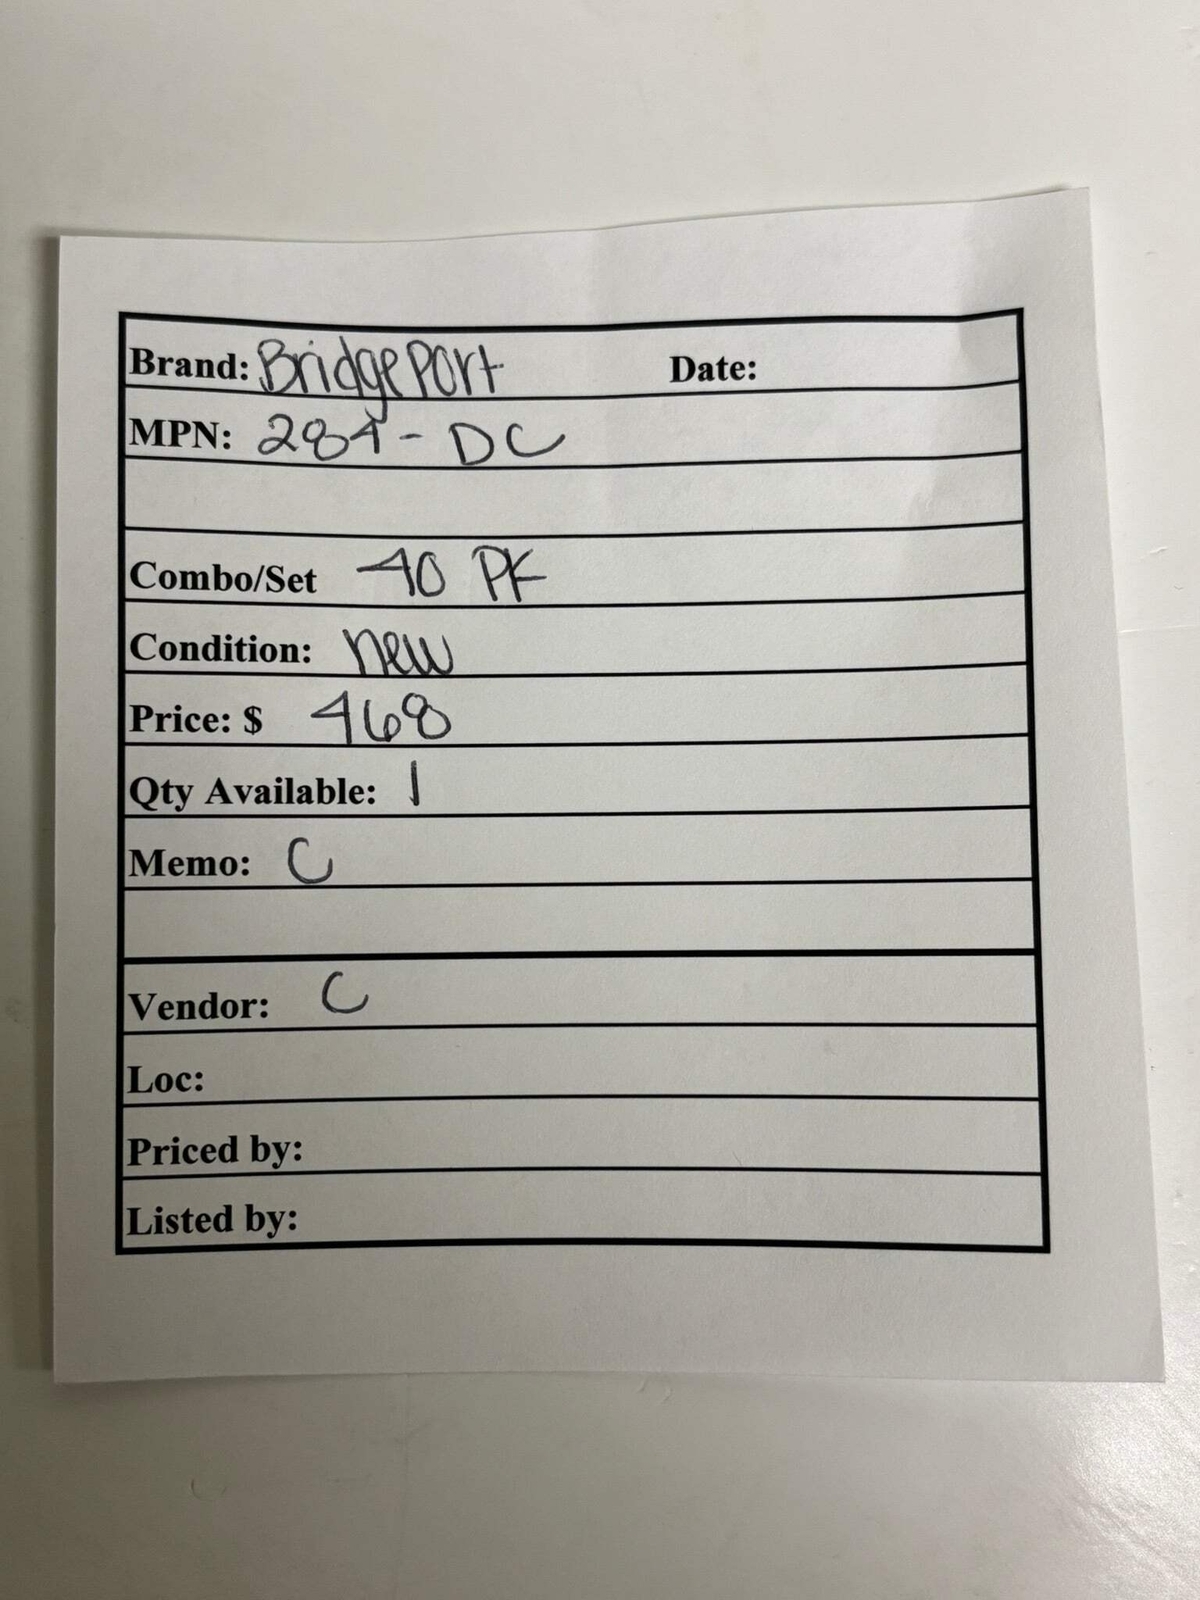 Brand: Bridgeport Date:
MPN: 284-DC
Combo/Set 40 PK
Condition: new
Price: $ 468
Qty Available: 1
Memo: C
Vendor: C
Loc:
Priced by:
Listed by: